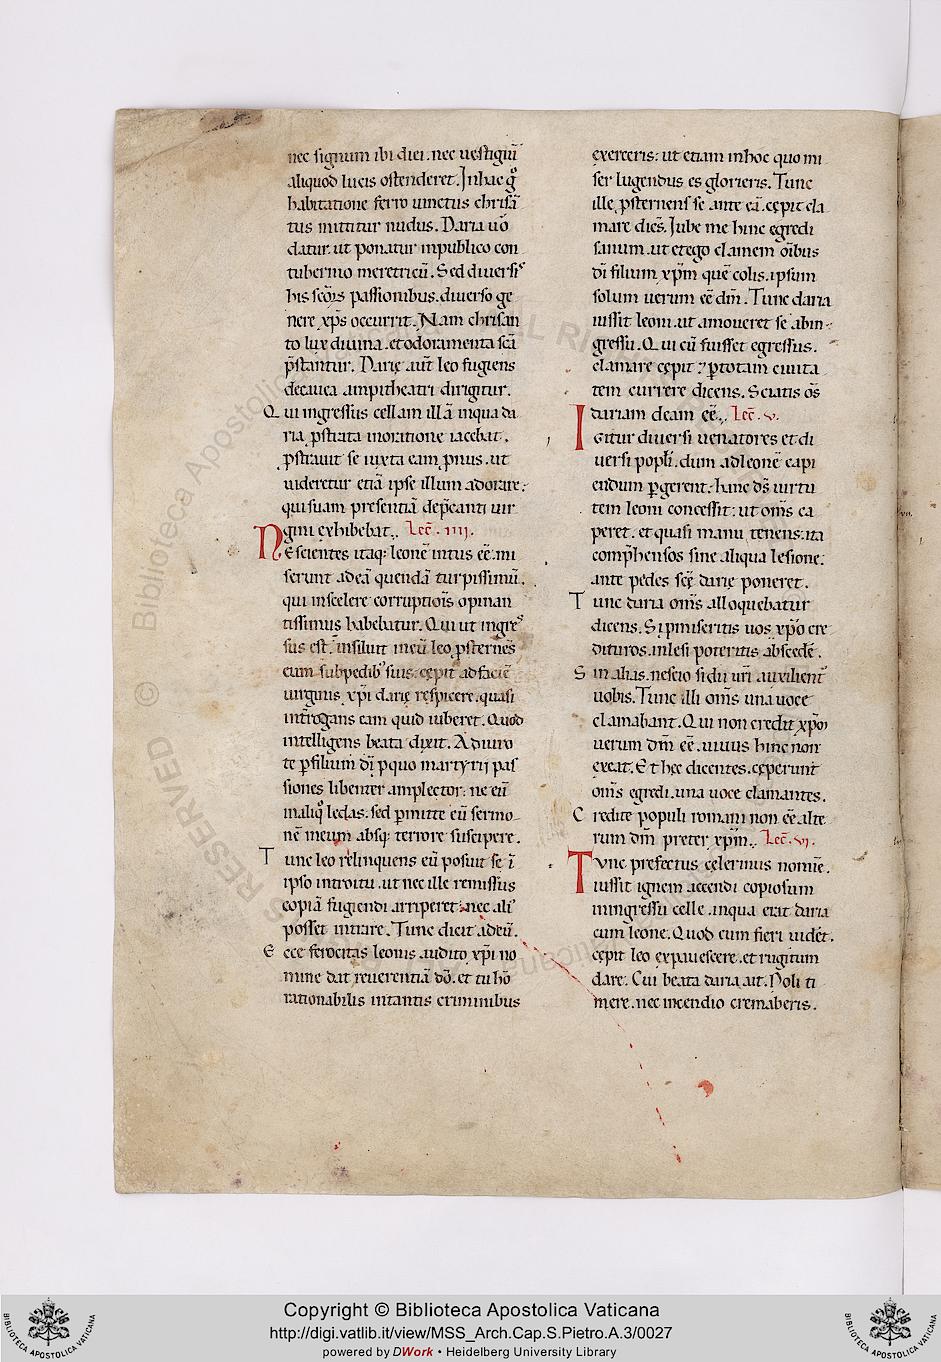 nec signum ibi diei. nec uestigiū
aliquod lucis ostenderet. In hac gͦ
habitatione ferro uinctus chrisā
tus mittitur nudus. Daria uͦo
datur. ut ponatur inpublico con
tubernio meretricū. Sed diuersiˢ
his seq̄ris passionibus. diuerso ge
nere xp̄s occurrit. Nam chrisan
to lux diuina. et odoramenta sc̄a
p̄stantur. Darię aut̄ leo fugiens
decauea ampitheatri dirigitur.
Qui ingressus cellam illā inqua da
ria ꝓstrata inoratione iacebat.
ꝓstrauit se iuxta eam prius. ut
uideretur etiā ipse illum adorare.
qui suam presentiā dep̄canti uir
gini exhibebat. Lec̄. IIII.
NEscientes itaq; leonē intus eē. mi
serunt ad eā quendā turpissimū.
qui inscelere corruptiois̄ opinan
tissimus habebatur. Qui ut ingreˢ
sus est. insiluit in eū leo. ꝓsternens̄
eum subpedib; suis. cępit ad faciē
uirginis xp̄i darię respicere. quasi
int̄rogans eam quid iuberet. Quod
intelligens beata dixit. Adiuro
te ꝑ filium dī ꝓ quo martyrii pas
siones libenter amplector. ne eū
in aliqͦ ledas. sed ꝑmitte eū sermo
nē meum absq; terrore suscipere.
Tunc leo relinquens eū posuit se ī
ipso introitu. ut nec ille remissus
copiā fugiendi arriperet. nec aliˀ
posset intrare. Tunc dicit ad eū.
Ecce ferocitas leonis. audito xp̄i no
mine dat reuerentiā dō. et tu hō
rationabilis intantis criminibus
exerceris. ut etiam inhoc quo mi
ser lugendus es glorieris. Tunc
ille ꝓsternens se ante eā. cępit cla
mare dicēs. Iube me hinc egredi
sanum. ut et ego clamem oīb̄us
dī filium xp̄m quē colis. ipsum
solum uerum eē dm̄. Tunc daria
iussit leoni. ut amoueret se ab in
gressu. Qui cū fuisset egressus.
clamare cępit ⁊ ꝑ totam ciuita
tem currere dicens. Sciatis ōs
dariam deam eē. Lec̄. v.
Igitur diuersi uenatores et di
uersi popli. dum ad leonē capi
endum ꝑgerent. hanc dš uirtu
tem leoni concessit. ut om̄s ca
peret. et quasi manu tenens. ita
comp̄hensos sine aliqua lesione.
ante pedes scę̄ darię poneret.
Tunc daria om̄s alloquebatur
dicens. Si pmiseritis uos xp̄o cre
dituros. inlesi poteritis abscedē.
Sin alias. nescio si dii ur̄i auxilient̄
uobis. Tunc illi om̄s una uoce
clamabant. Qui non credit xp̄m
uerum dm̄ eē. uiuus hinc non
exeat. Et hęc dicentes. cęperunt
om̄s egredi. una uoce clamantes.
Credite populi romani non eē alte
rum dm̄ preter xp̄m. Lec̄. vi.
Tunc prefectus celerinus nomīe.
iussit ignem accendi copiosum
iningressu celle. inqua erat daria
cum leone. Quod cum fieri uidet̄.
cępit leo expauescere. et rugitum
dare. Cui beata daria ait. Noli ti
mere. nec incendio cremaberis.
Copyright © Biblioteca Apostolica Vaticana
http://digi.vatlib.it/view/MSS_Arch.Cap.S.Pietro.A.3/0027
powered by DWork • Heidelberg University Library